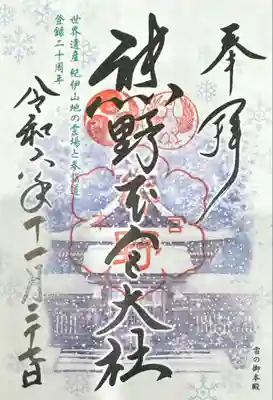 奉拝
熊野本宮大社
世界遺産 紀伊山地の霊場と参詣道
登録二十周年
令和六年十一月二十七日
雪の御本殿